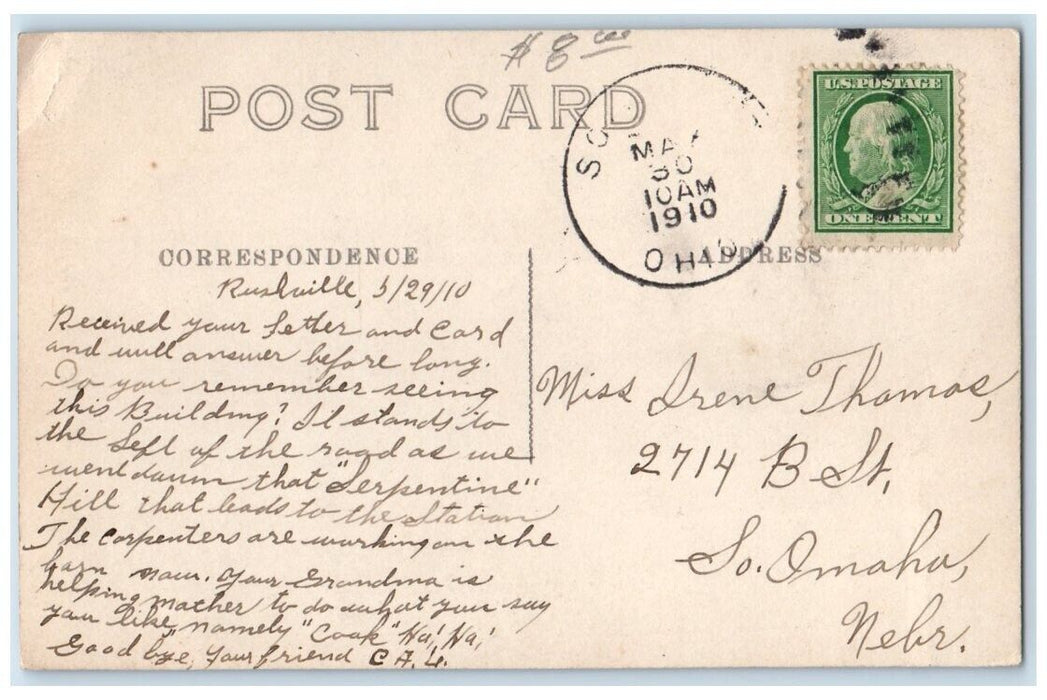 $ 8 00
POST CARD
U.S. POSTAGE
ONE CENT
MAY
30
10 AM
1910
OHIO
CORRESPONDENCE
ADDRESS
Rushville, 5/29/10
Received your letter and Card
and will answer before long.
Do you remember seeing
this Building? It stands to
the left of the road as we
went down that "Serpentine"
Hill that leads to the Station
The carpenters are working on the
barn now. Your Grandma is
helping mother to do what you say
you like, namely "Cook" Ha! Ha!
Good bye, Your friend C A. L.
Miss Irene Thomas,
2714 B St,
So. Omaha,
Nebr.